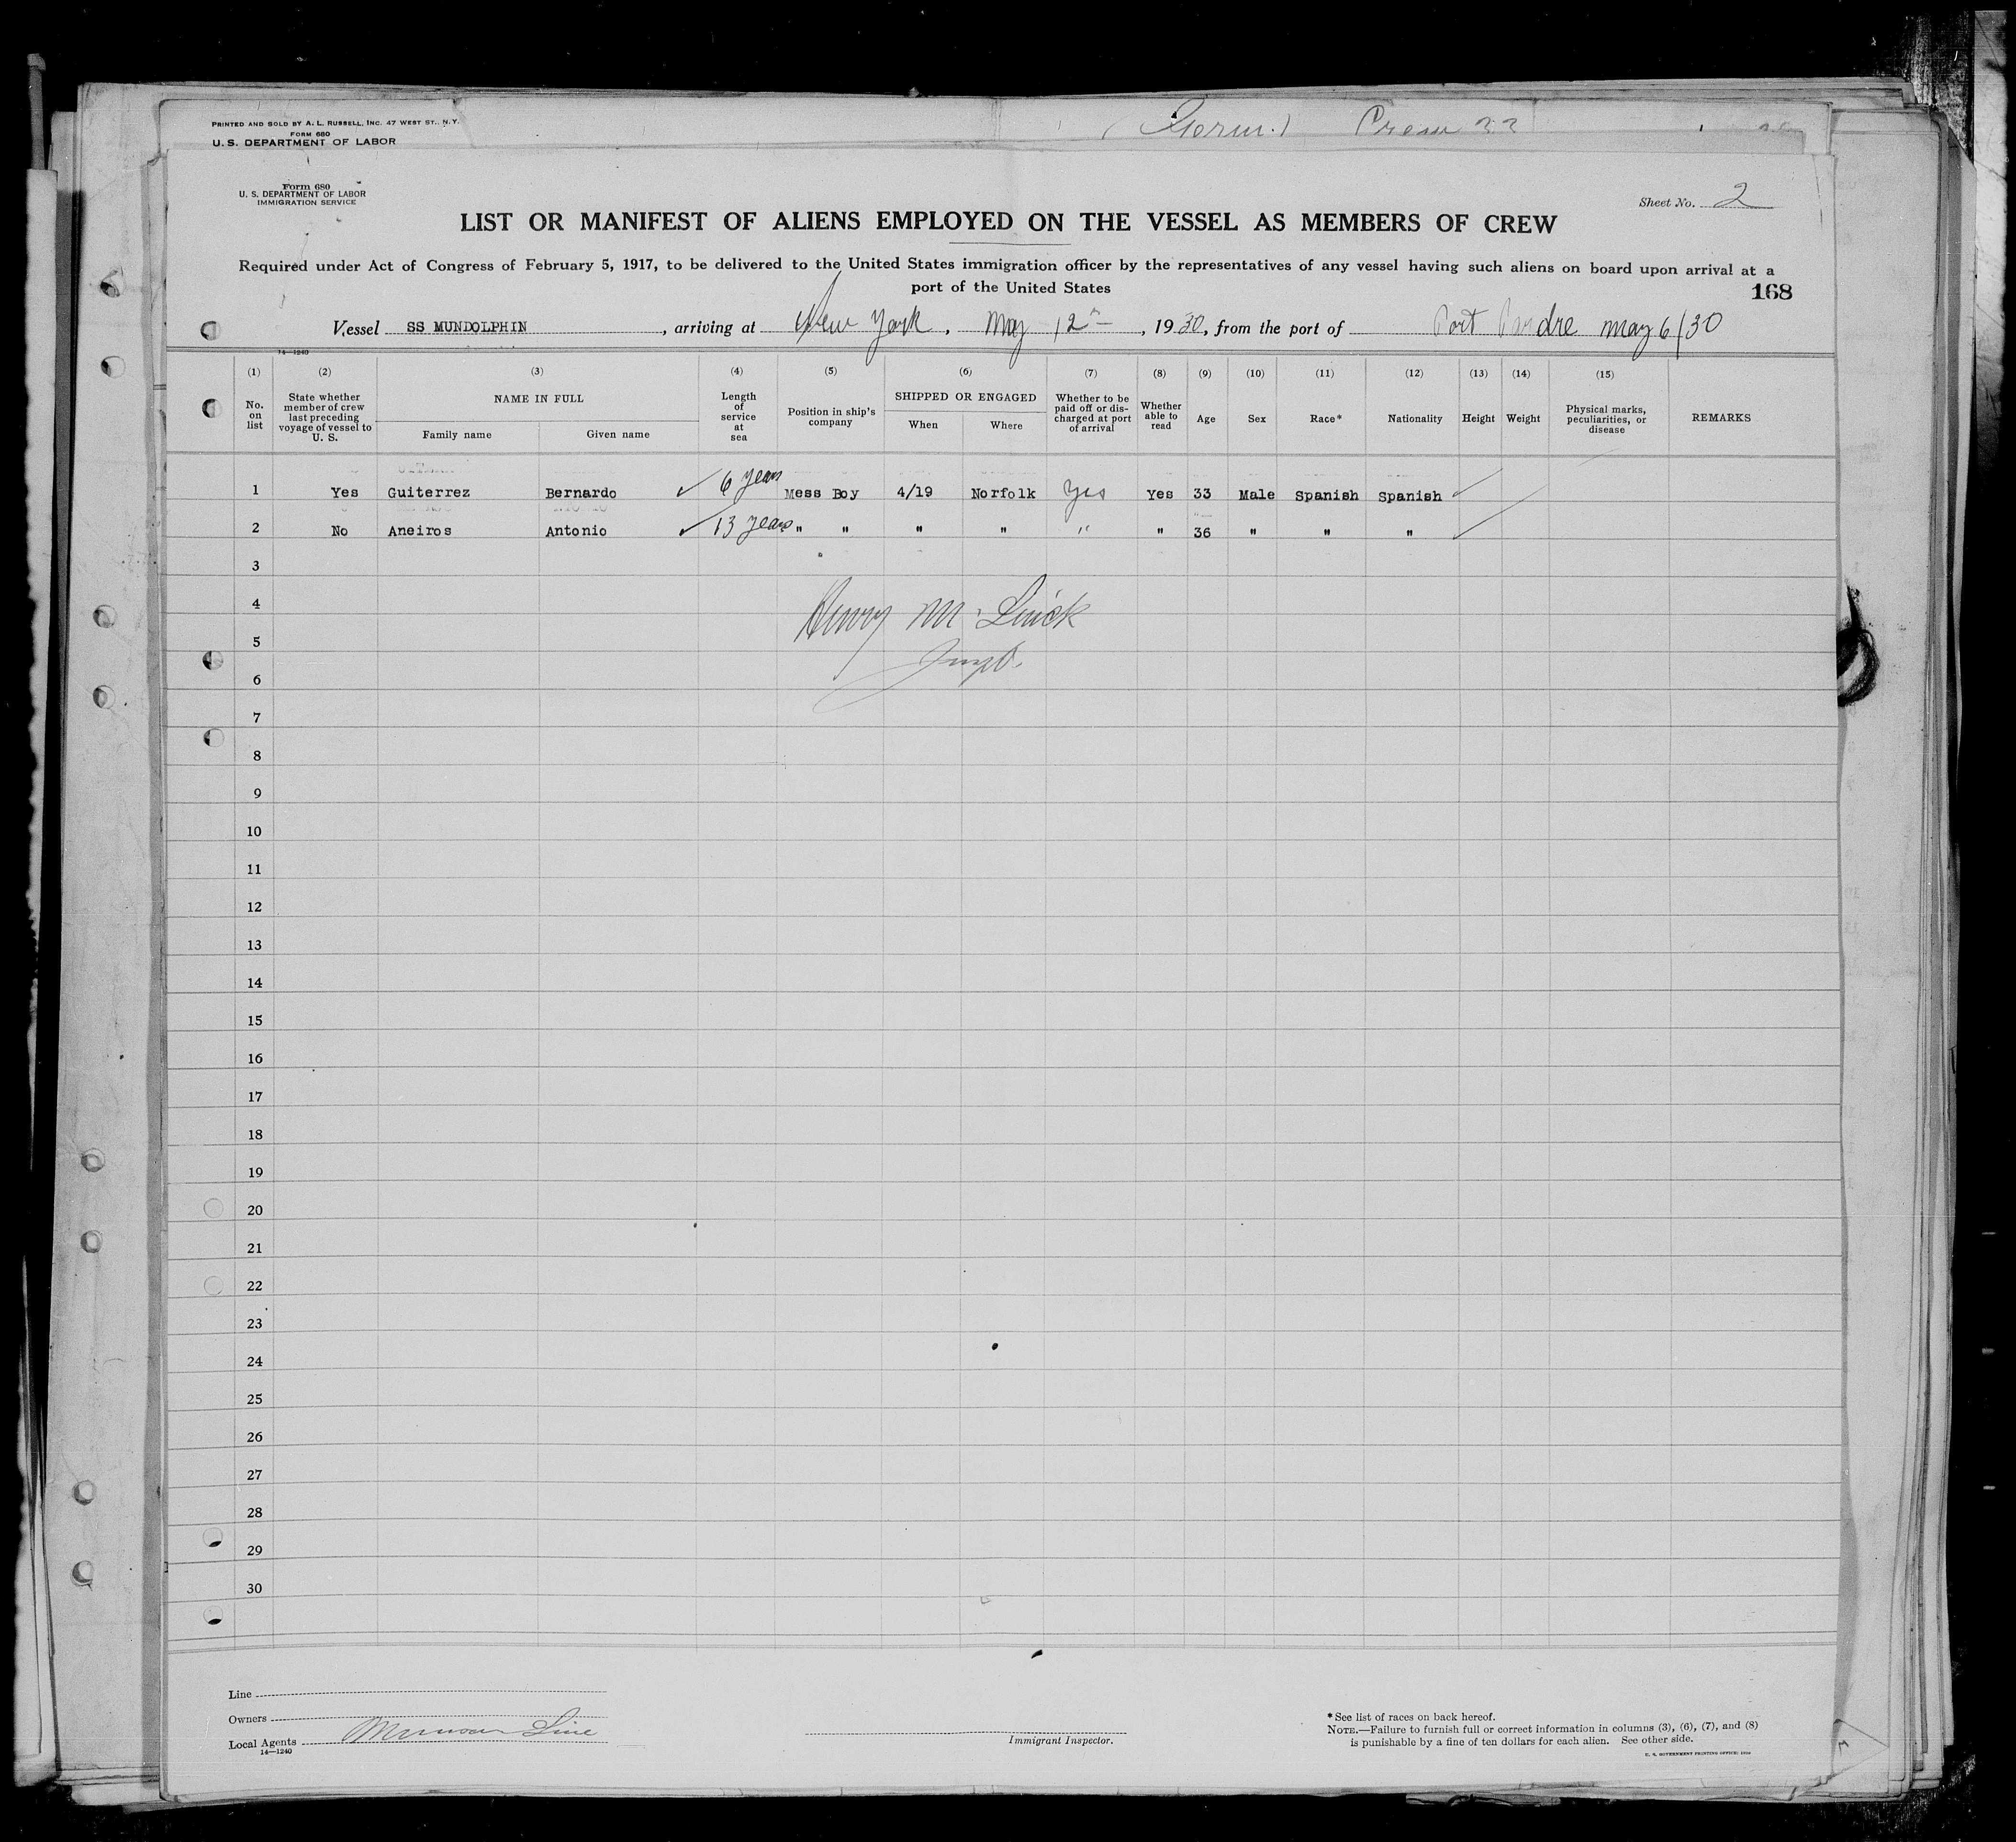 PRINTED AND SOLD BY A. L. RUSSELL, INC. 47 WEST ST., N. Y.
FORM 680
U. S. DEPARTMENT OF LABOR
Crew
Form 680
U. S. DEPARTMENT OF LABOR
IMMIGRATION SERVICE
Sheet No. 2
LIST OR MANIFEST OF ALIENS EMPLOYED ON THE VESSEL AS MEMBERS OF CREW
Required under Act of Congress of February 5, 1917, to be delivered to the United States immigration officer by the representatives of any vessel having such aliens on board upon arrival at a
port of the United States
168
Vessel SS MUNDOLPHIN, arriving at New York, May 12, 1930, from the port of Port Padre May 6/30
14—1240
(1) (2) (3) (4) (5) (6) (7) (8) (9) (10) (11) (12) (13) (14) (15)
No. on list
State whether member of crew last preceding voyage of vessel to U. S.
NAME IN FULL
Family name Given name
Length of service at sea
Position in ship's company
SHIPPED OR ENGAGED
When Where
Whether to be paid off or discharged at port of arrival
Whether able to read
Age
Sex
Race*
Nationality
Height
Weight
Physical marks, peculiarities, or disease
REMARKS
1 Yes Guiterrez Bernardo ✓ 6 years Mess Boy 4/19 Norfolk Yes Yes 33 Male Spanish Spanish ✓
2 No Aneiros Antonio ✓ 13 years " " " " " " 36 " " " ✓
3
4
Henry M.
5
6
7
8
9
10
11
12
13
14
15
16
17
18
19
20
21
22
23
24
25
26
27
28
29
30
Line
Owners
Local Agents Munson Line
14—1240
Immigrant Inspector.
* See list of races on back hereof.
NOTE.—Failure to furnish full or correct information in columns (3), (6), (7), and (8)
is punishable by a fine of ten dollars for each alien. See other side.